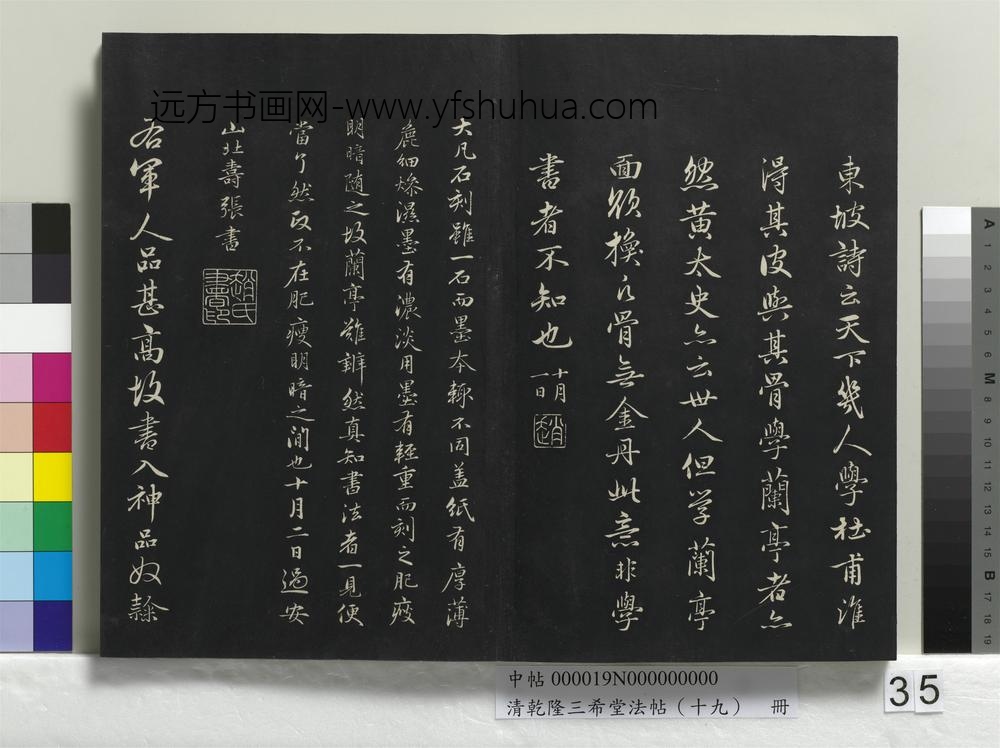 远方书画网-www.yfshuhua.com
東坡詩云天下幾人學杜甫誰
得其皮與其骨學蘭亭者亦
然黃太史亦云世人但学蘭亭
面欲換凡骨無金丹此意非學
書者不知也十月一日
趙
大凡石刻雖一石而墨本輒不同盖紙有厚薄
麁細燥濕墨有濃淡用墨有輕重而刻之肥瘦
明暗随之故蘭亭難辨然真知書法者一見便
當了然政不在肥瘦明暗之間也十月二日過安
山北壽張書
趙氏書印
右軍人品甚高故書入神品奴隸
中帖 000019N000000000
清乾隆三希堂法帖（十九） 冊
35
A 1 2 3 4 5 6 M 8 9 10 11 12 13 14 15 B 17 18 19